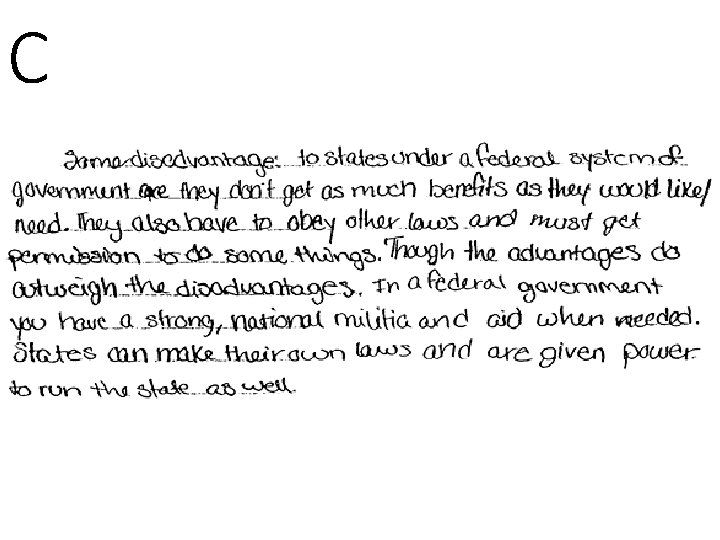 C
Some disadvantage: to states under a federal system of
government are they don't get as much benefits as they would like/
need. They also have to obey other laws and must get
permission to do some things. Though the advantages do
outweigh the disadvantages. In a federal government
you have a strong, national militia and aid when needed.
States can make their own laws and are given power
to run the state as well.